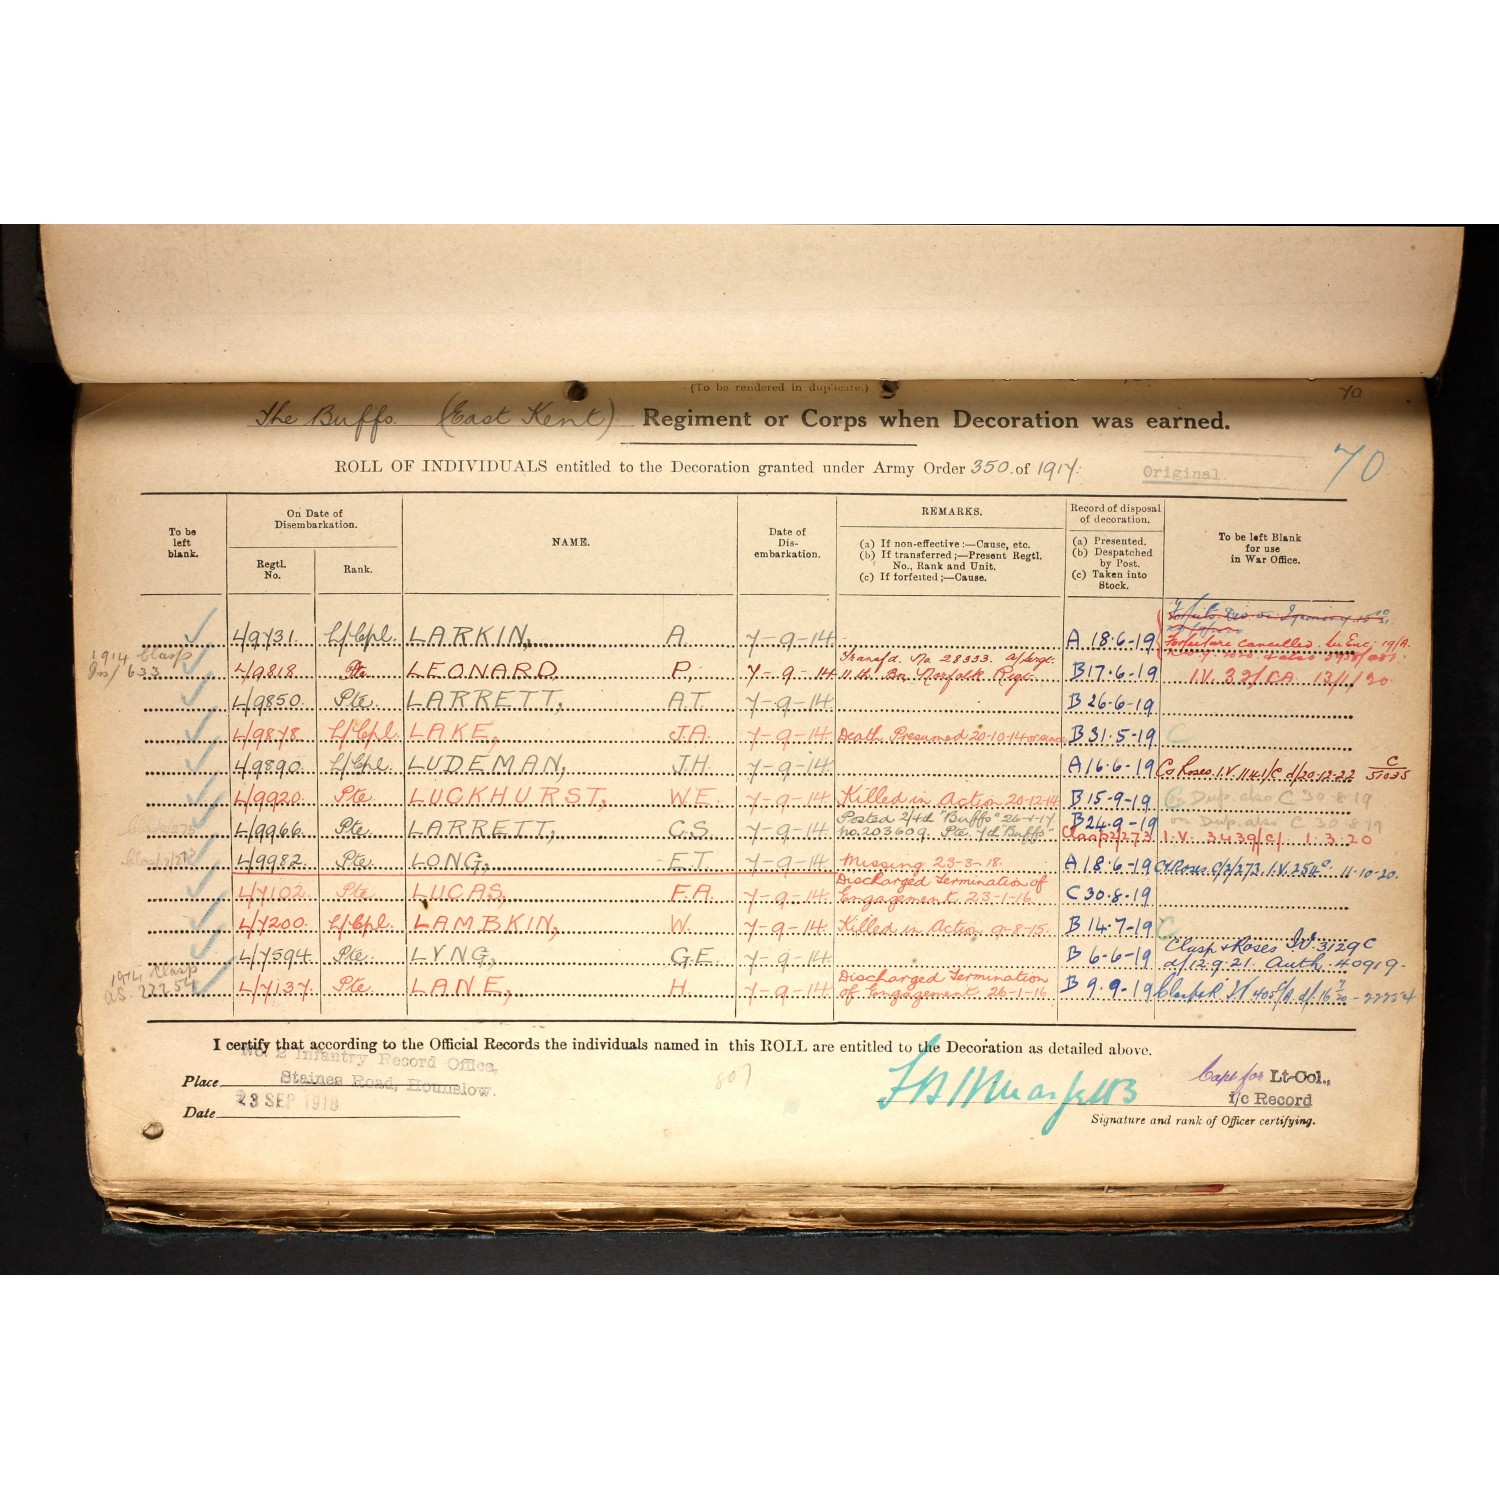 (To be rendered in duplicate.)
70
The Buffs (East Kent) Regiment or Corps when Decoration was earned.
ROLL OF INDIVIDUALS entitled to the Decoration granted under Army Order 350 of 1917.
Original
70
To be left blank.
On Date of Disembarkation.
Regtl. No.
Rank.
NAME.
Date of Dis-embarkation.
REMARKS.
(a) If non-effective:—Cause, etc.
(b) If transferred;—Present Regtl. No., Rank and Unit.
(c) If forfeited;—Cause.
Record of disposal of decoration.
(a) Presented.
(b) Despatched by Post.
(c) Taken into Stock.
To be left Blank for use in War Office.
L/9731 L/Cpl. LARKIN, A. 7-9-14 A 18-6-19 Forfeiture cancelled
1914 Clasp 633 L/9818 Pte LEONARD P, 7-9-14 Transf'd. No 28333 a/Sergt. 11th Bn Norfolk Regt. B 17-6-19 I.V. 32/CA 13/1/20
L/9850 Pte. LARRETT, A.T. 7-9-14 B 26-6-19
L/9878 L/Cpl. LAKE, J.A. 7-9-14 Death Presumed 20-10-14 or since B 31-5-19 C
L/9890 L/Cpl. LUDEMAN, J.H. 7-9-14 A 16-6-19 C & Roses I.V. 114.1/C d/20-12-22 C/51035
L/9920 Pte. LUCKHURST, W.E. 7-9-14 Killed in Action 20-12-14 B 15-9-19 C Dup. also C 30 8 19
L/9966 Pte. LARRETT, C.S. 7-9-14 Posted 2/4th "Buffs" 26-1-17 No. 203609 Pte. 7th "Buffs" B 24-9-19 on Dup. also C 30 8 19
Clasp 2/273 I.V. 3439/C/ 1.3.20
L/9982 Pte. LONG, E.T. 7-9-14 Missing 23-3-18. A 18-6-19 C & Roses C/2/273, I.V. 254c 11-10-20.
L/7102 Pte. LUCAS, F.A. 7-9-14 Discharged Termination of Engagement 23-1-16 C 30-8-19
L/7200 L/Cpl. LAMBKIN, W. 7-9-14 Killed in Action 9-8-15. B 14-7-19 C
L/7594 Pte. LYNG, G.E. 7-9-14 B 6-6-19 Clasp & Roses IV. 3129C d/12.9.21. Auth. 40919.
1914 Clasp AS. 22254 L/7137 Pte. LANE, H. 7-9-14 Discharged Termination of Engagement 26-1-16 B 9-9-19 Clasp & R. IV 405c/A d/16 7/20 - 22254
I certify that according to the Official Records the individuals named in this ROLL are entitled to the Decoration as detailed above.
No. 2 Infantry Record Office,
Staines Road, Hounslow.
Place
23 SEP 1918
Date
807
Capt for Lt-Col.,
i/c Record
Signature and rank of Officer certifying.